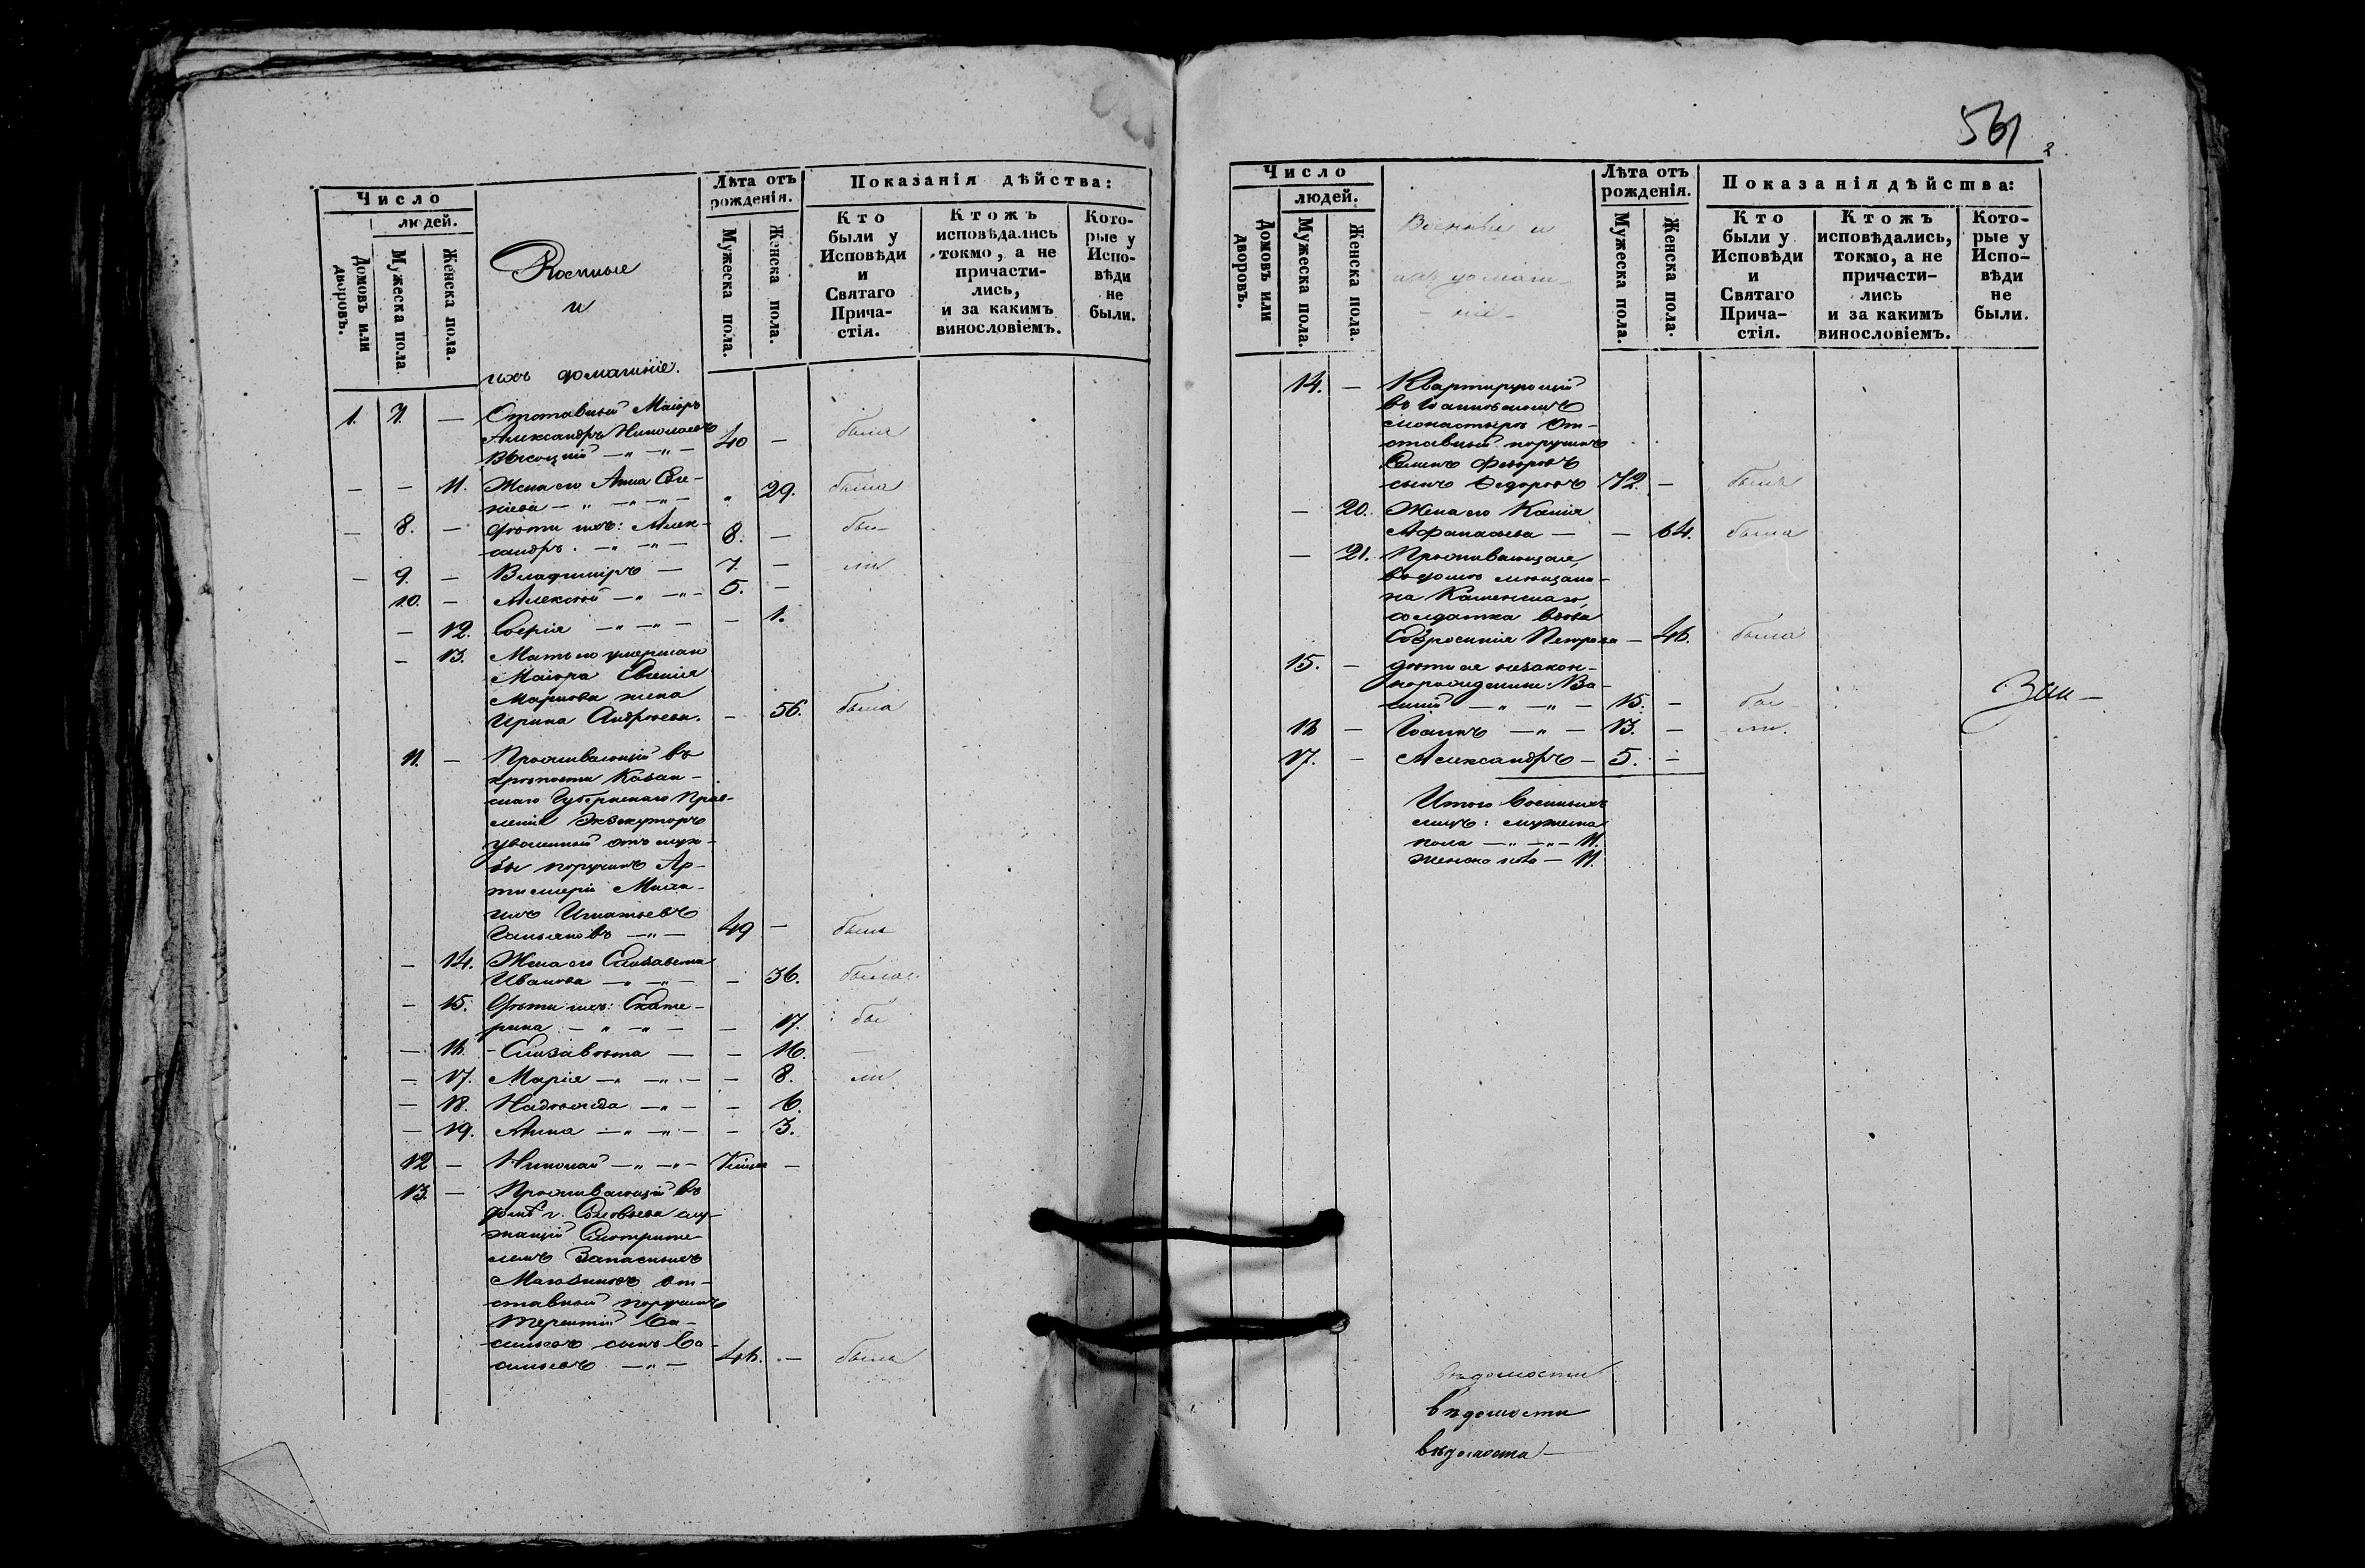 Число
людей.
Домовъ или дворовъ.
Мужеска пола
Женска пола.
Военные
и
ихъ домашніе.
Лѣта отъ
рожденія.
Мужеска пола.
Женска пола.
Показанія дѣйства:
Кто
были у
Исповѣди
и
Святаго
Прича-
стія.
Ктожъ
исповѣдались
токмо, а не
причасти-
лись,
и за какимъ
винословіемъ.
Кото-
рые у
Испо-
вѣди
не
были.
1. 7. — Отставный Маіоръ
Александръ Николаевъ
Высоцкій — „ — „ — 40 — былъ
— — 11. Жена его Анна Евге-
ніева — „ — „ — „ 29. была
— 8. — Дѣти ихъ: Алек-
сандръ. — „ — „ — 8. — бы-
— 9. — Владиміръ — 7. — ли
10. — Алексѣй — „ — „ — 5. —
— 12. Софія — „ — „ — — 1.
— 13. Мать его умершаго
Маіора Евгенія
Маркова жена
Ирина Андреева. — 56. была
11. — Проживающій въ
крѣпости Казан-
скаго Губернскаго Прав-
ленія Экзекуторъ
уволенный отъ служ-
бы поручикъ Ар-
тиллеріи
Игнатьевъ
— „ — 49 — былъ
— 14. Жена его Елизавета
Иванова — „ — „ — — 36. была
— 15. Дѣти ихъ: Екате-
рина — „ — „ — — 17. бы
— 16. — Елизавета — — 16.
— 17. Марія — „ — „ — — 8. ли
— 18. Надежда — „ — — 6.
— 19. Анна — „ — „ — — 3.
12 — Николай — „ — „ — —
13. — Проживающій въ
домѣ г. Соловьева слу-
жащій Смотрите-
лемъ Запасныхъ
Магазиновъ от-
ставный поручикъ
Терентій Ва-
сильевъ сынъ Ва-
сильевъ — „ — 46. — былъ
561
2.
Число
людей.
Домовъ или дворовъ.
Мужеска пола.
Женска пола.
Военные и
ихъ домаш-
— ніе —
Лѣта отъ
рожденія.
Мужеска пола.
Женска пола.
Показанія дѣйства:
Кто
были у
Исповѣди
и
Святаго
Прича-
стія.
Ктожъ
исповѣдались,
токмо, а не
причасти-
лись
и за какимъ
винословіемъ.
Кото-
рые у
Испо-
вѣди
не
были.
14. — Квартирующій
въ Іоанновскомъ
монастырѣ от-
ставный поручикъ
Семенъ Федоровъ
сынъ Федоровъ 72. — былъ
— 20. Жена его Ксенія
Афанасьева — — 64. была
— 21. Проживающая,
въ домѣ мѣщани-
на Каменскаго,
солдатка вдова
Евфросинія Петрова — 46. была
15. — дѣти ея незакон-
норожденные: Ва-
силій — „ — „ — 15. — бы-
16 — Іоаннъ — „ — 13. — ли.
17. — Александръ — 5. —
Итого военныхъ
лицъ: мужеска
пола — „ — „ — 11.
женска пола — 11.
вѣдомости
вѣдомости
вѣдомости —